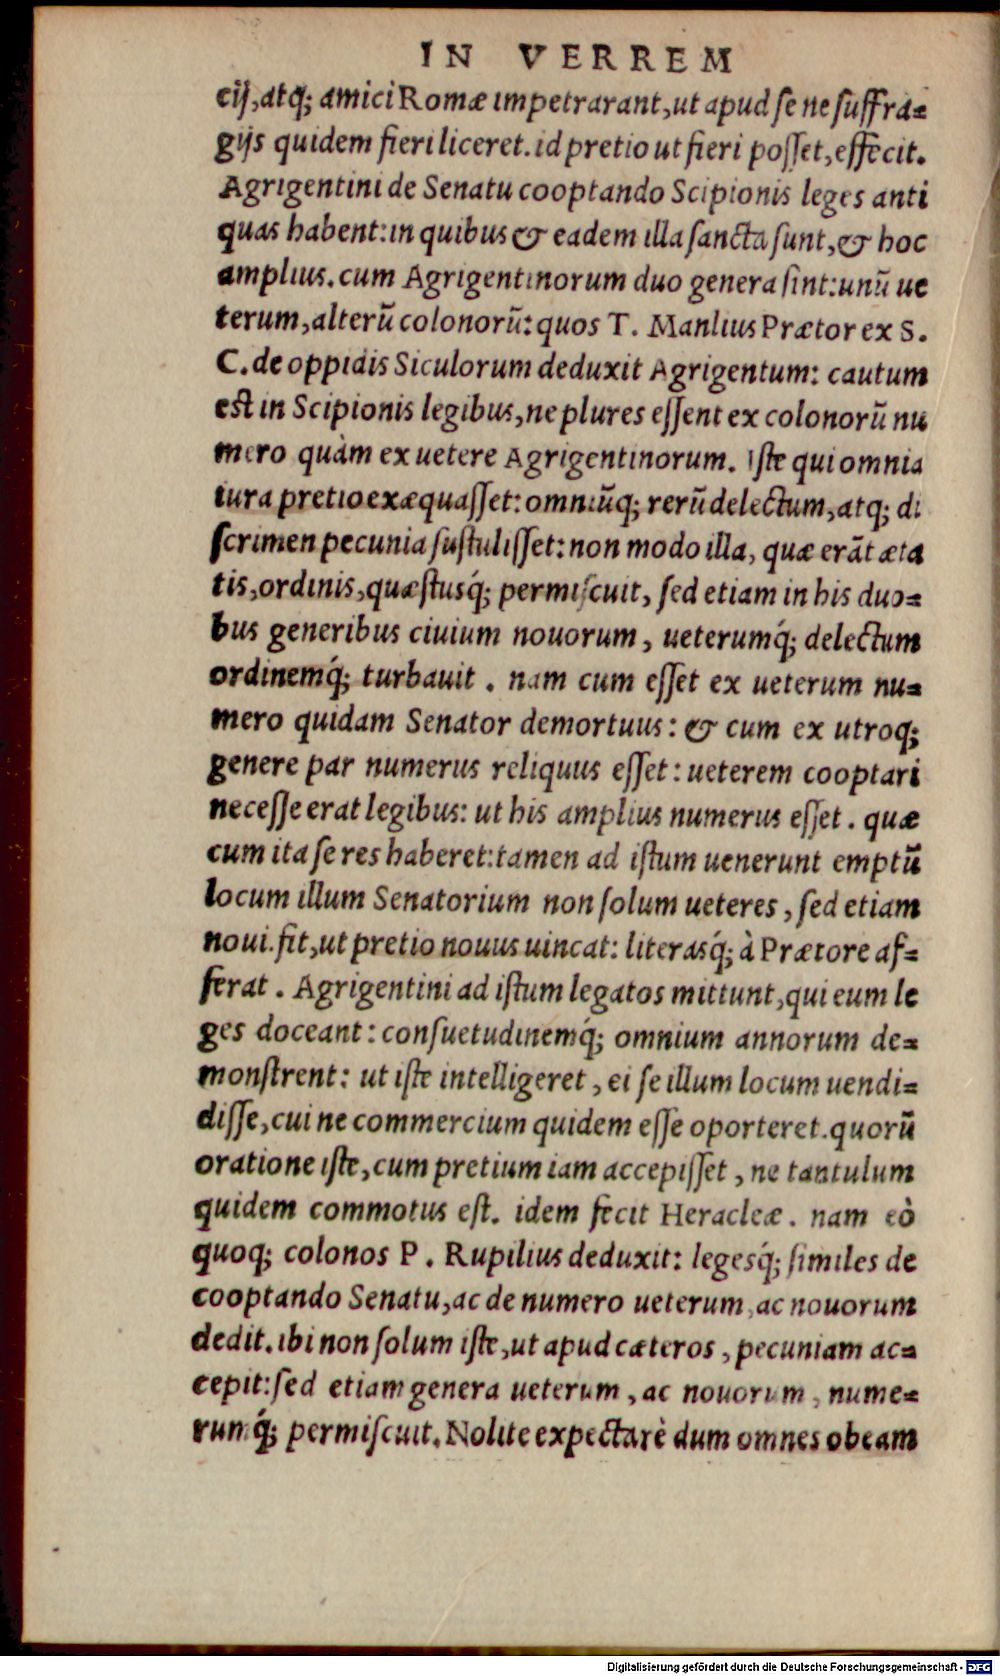 IN VERREM
cij, atq; amici Romæ impetrarant, ut apud se ne suffra-
gijs quidem fieri liceret. id pretio ut fieri posset, effecit.
Agrigentini de Senatu cooptando Scipionis leges anti
quas habent: in quibus & eadem illa sancta sunt, & hoc
amplius. cum Agrigentinorum duo genera sint: unũ ue
terum, alterũ colonorũ: quos T. Manlius Prætor ex S.
C. de oppidis Siculorum deduxit Agrigentum: cautum
est in Scipionis legibus, ne plures essent ex colonorũ nu
mero quàm ex uetere Agrigentinorum. Iste qui omnia
iura pretio exæquasset: omniũq; rerũ delectum, atq; di
scrimen pecunia sustulisset: non modo illa, quæ erãt æta
tis, ordinis, quæstusq́; permiscuit, sed etiam in his duo-
bus generibus ciuium nouorum, ueterumq́; delectum
ordinemq́; turbauit. nam cum esset ex ueterum nu-
mero quidam Senator demortuus: & cum ex utroq;
genere par numerus reliquus esset: ueterem cooptari
necesse erat legibus: ut his amplius numerus esset. quæ
cum ita se res haberet: tamen ad istum uenerunt emptũ
locum illum Senatorium non solum ueteres, sed etiam
noui. fit, ut pretio nouus uincat: literasq́; à Prætore af-
ferat. Agrigentini ad istum legatos mittunt, qui eum le
ges doceant: consuetudinemq́; omnium annorum de-
monstrent: ut iste intelligeret, ei se illum locum uendi-
disse, cui ne commercium quidem esse oporteret. quorũ
oratione iste, cum pretium iam accepisset, ne tantulum
quidem commotus est. idem fecit Heracleæ. nam eò
quoq; colonos P. Rupilius deduxit: legesq́; similes de
cooptando Senatu, ac de numero ueterum, ac nouorum
dedit. ibi non solum iste, ut apud cæteros, pecuniam ac-
cepit: sed etiam genera ueterum, ac nouorum, nume-
rumq́; permiscuit. Nolite expectarè dum omnes obeam
Digitalisierung gefördert durch die Deutsche Forschungsgemeinschaft - DFG